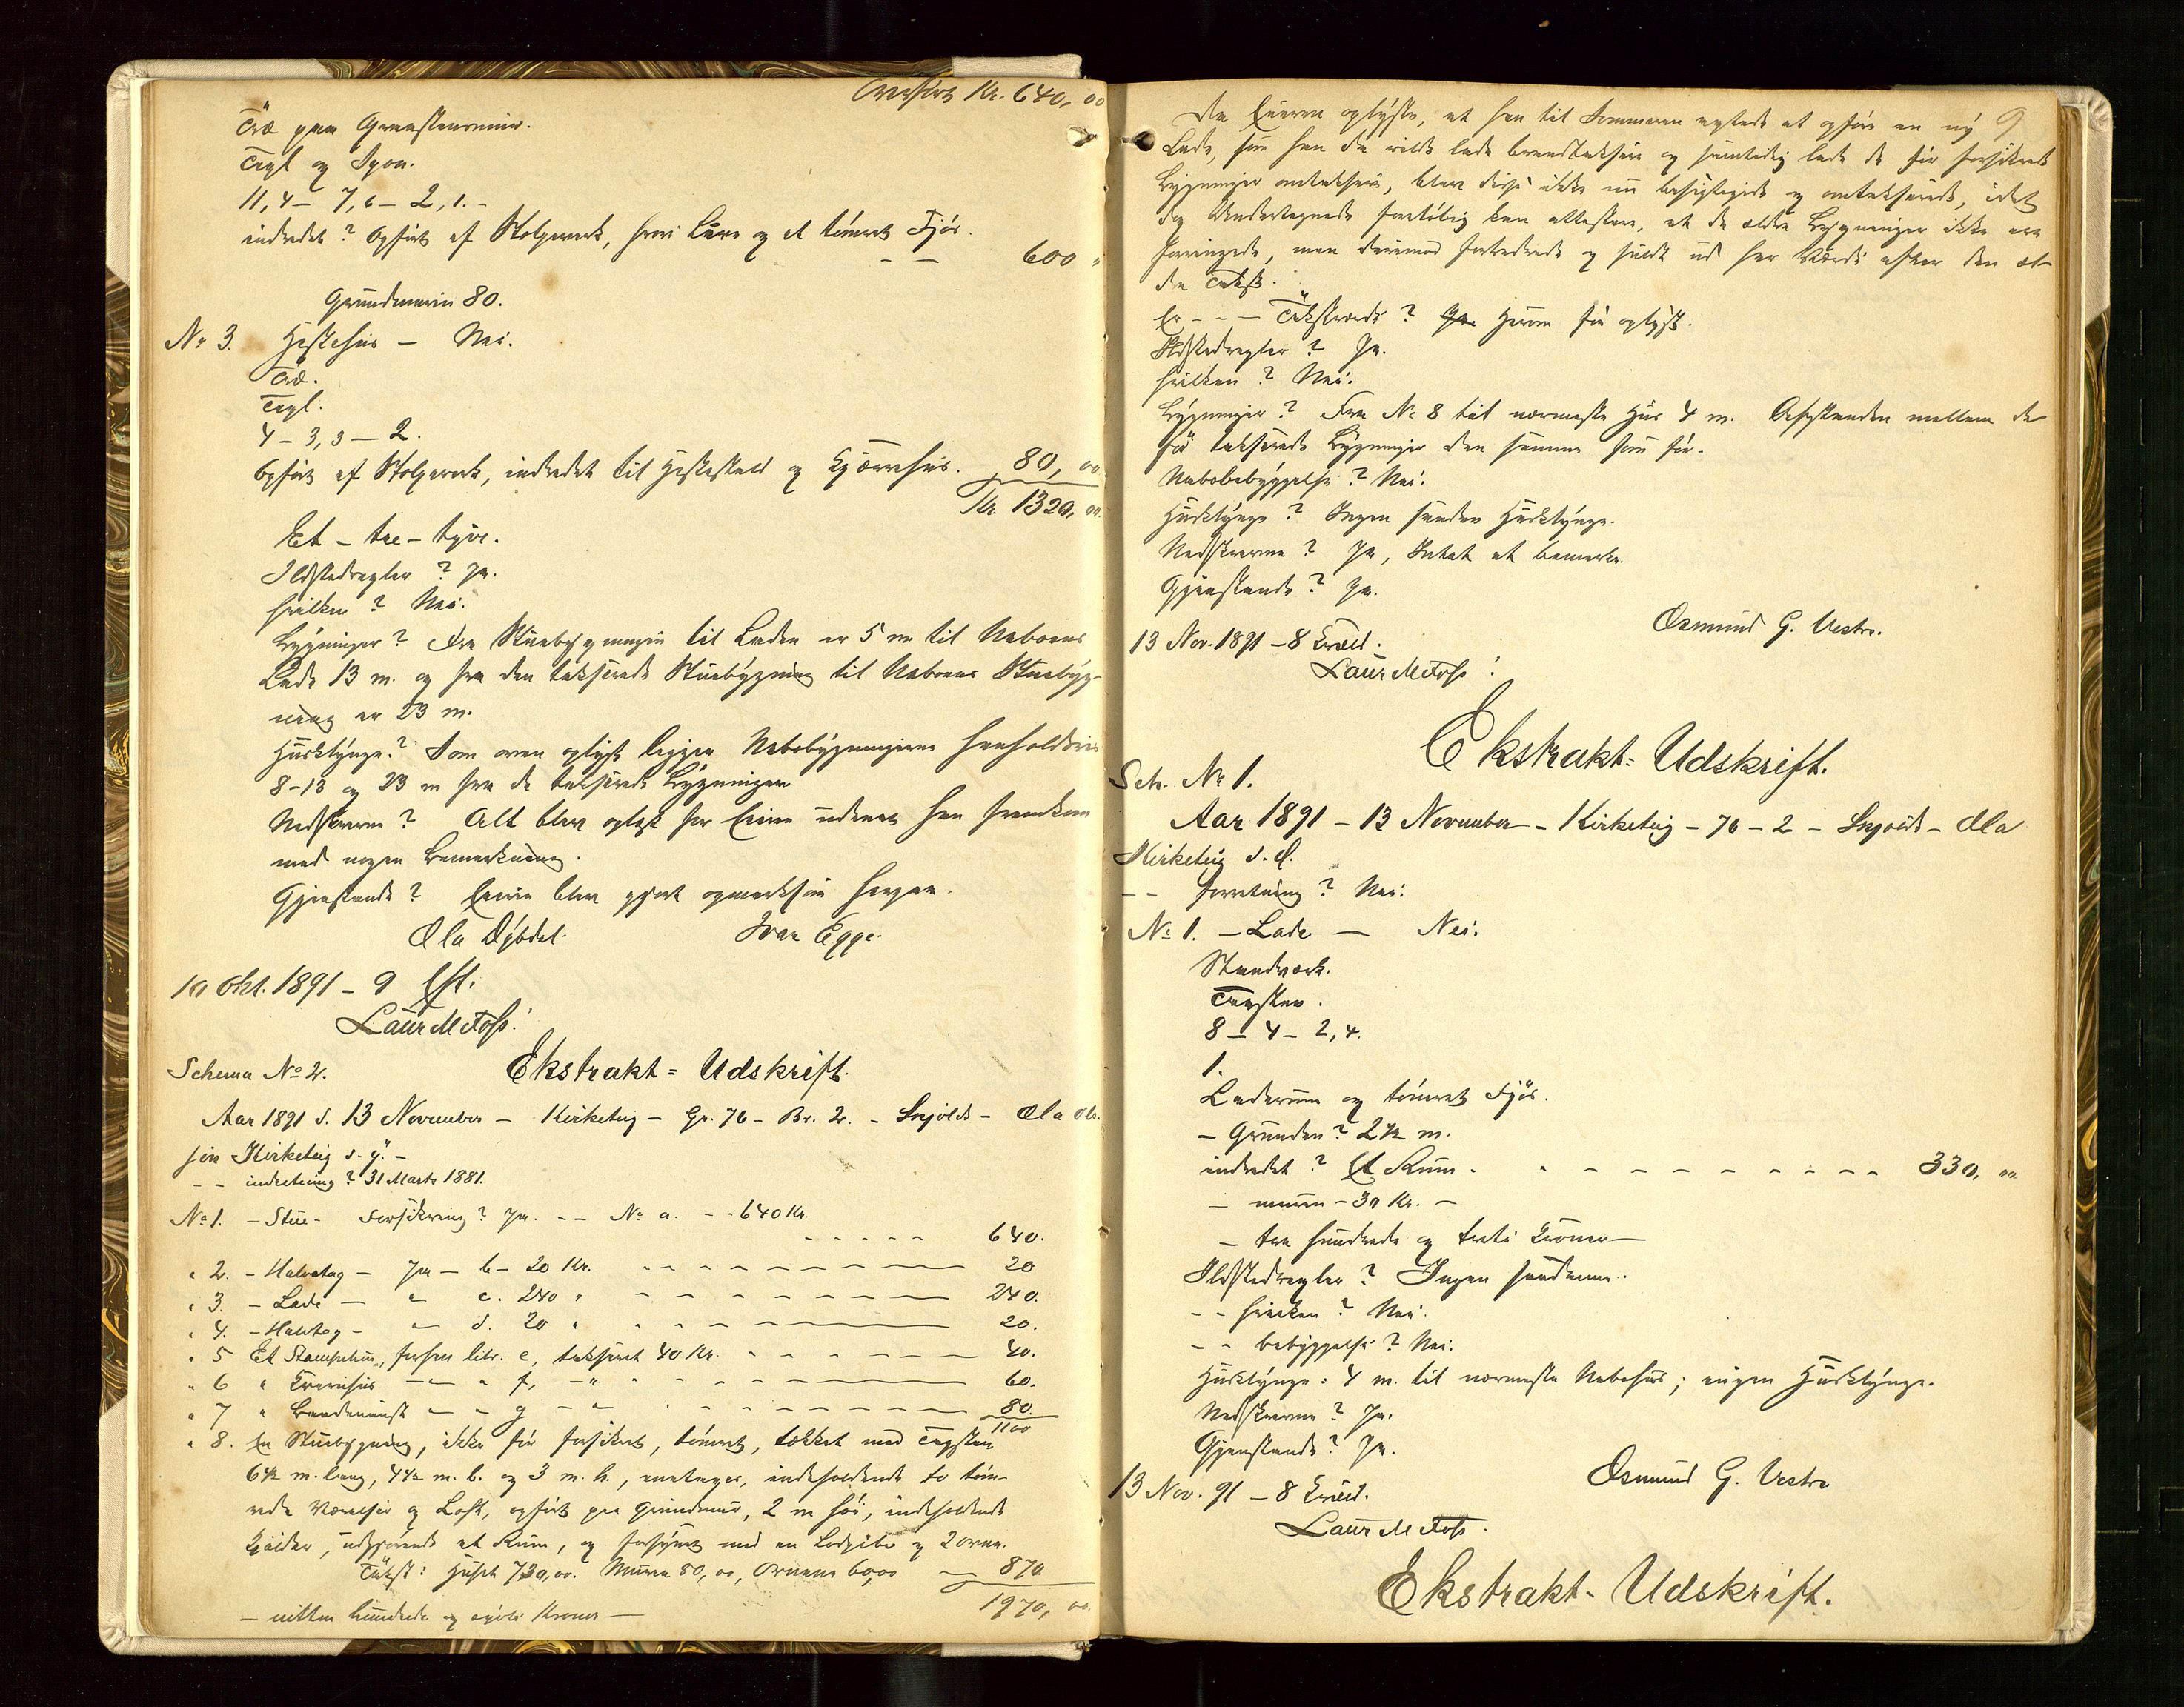 Overført Kr. 640,00
Træ paa Graastensmur.
Tegl og Spon.
11,4 – 7,6 – 2,1. –
indredet? Opført af Stolpeværk, hvori Løve og et tømret Fjøs.
– – 600 "
Grundmuren 80.
No 3. Hestehus – Nei.
Træ.
Tegl.
4 – 3,3 – 2.
Opført af Stolpeværk, indredet til Hestestald og Kjærrehus. 80,00
Kr. 1320,00.
Et – tre – tyve.
Ildstedregler? Ja.
hvilken? Nei.
Bygninger? Fra Stuebygningen til Laden er 5 m til Naboens
Lade 13 m. og fra den takserede Stuebygning til Naboens Stuebyg-
ning er 23 m.
Husklynge? Som oven oplyst ligger Nabobygningerne henholdsvis
8-13 og 23 m fra de takserede Bygninger
Nedskrevne? Alt blev oplæst for Eieren uden at han fremkom
med nogen Bemærkning.
Gjenstande? Eieren blev gjort opmærksom herpaa.
Ola Dybdal. Ivar Egge.
10 Okt. 1891 – 9 Eft.
Laur M Foss.
Schema No 2. Ekstrakt=Udskrift.
Aar 1891 d. 13 November – Kirketeig – Gr. 76 – Br. 2. – Skjold – Ola Ol.
sen Kirketeig s. g. –
– – indretning? 31 Marts 1881.
No 1. – Stue – Forsikring? Ja. – – No a. – – 640 Kr.
– – – – – 640.
" 2. – Halvtag – Ja – b – 20 Kr. – – – 20
" 3. – Lade – " c. 240 " – – – 240.
" 4. – Halvtag – – d. 20 " – – – 20.
" 5 Et Stampehus, forhen litr. e, takseret 40 Kr. – – – 40.
" 6 " Kværnhus – – " f, – " – – – 60.
" 7 " – – g – – – – 80.
1100
" 8. En Stuebygning, ikke før forsikret, tømret, tækket med Tagsten
6½ m. lang, 4½ m. b. og 3 m. h., enetages, indeholdende to tøm-
rede Værelser og Loft, opført paa Grundmur, 2 m høi, indeholdende
Kjælder, udgjørende et Rum, og forsynet med en Lodpibe og 2 ovne.
Takst: Huset 730,00. Muren 80,00, Ovnene 60,00 – 870
– nitten hundrede og sytti Kroner – 1970,00.
9
Da Eieren oplyste, at han til Sommeren agtede at opføre en ny
Lade, som han da vilde lade brandtaksere og samtidig lade de før forsikrede
Bygninger omtaksere, blev disse ikke nu besigtigede og omtakserede, idet
dog Undertegnede foreløbig kan attestere, at de ældre Bygninger ikke ere
forringede, men derimod forbedrede og fuldt ud har Værdi efter den æl-
dre Takst.
Er – – – Takstværdi? Herom før oplyst.
Ildstedregler? Ja.
hvilken? Nei.
Bygninger? Fra No 8 til nærmeste Hus 4 m. Afstanden mellem de
før takserede Bygninger den samme som før.
Nabobebyggelse? Nei.
Husklynge? Ingen saadan Husklynge.
Nedskrevne? Ja, Intet at bemærke.
Gjenstande? Ja.
Osmund G. Vestre.
13 Nov. 1891 – 8 Kvæld.
Laur M Foss.
Ekstrakt=Udskrift.
Sch. No 1.
Aar 1891 – 13 November – Kirketeig – 76 – 2 – Skjold – Ola
Kirketeig s. d.
– – forretning? Nei.
No 1. – Lade – Nei.
Standværk.
Tagsten.
8 – 4 – 2,4.
1.
Laderum og tømret Fjøs.
– Grunden? 2½ m.
indredet? Et Rum. – – – – 330,00
– muren – 30 Kr. –
– tre hundrede og tretti Kroner –
Ildstedregler? Ingen saadanne.
– – hvilken? Nei.
– – bebyggelse? Nei.
Husklynge: 4 m. til nærmeste Nabohus; ingen Husklynge.
Nedskrevne? Ja.
Gjenstande? Ja.
Osmund G. Vestre
13 Nov. 91 – 8 Kvæld.
Laur M Foss.
Ekstrakt-Udskrift.